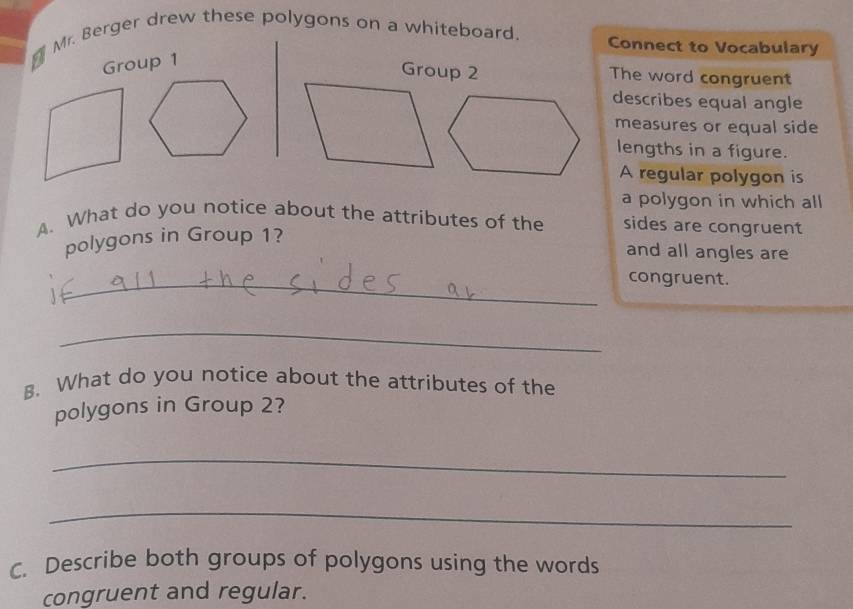 Mr. Berger drew these polygons on a whiteboard.
Group 1
Group 2
A. What do you notice about the attributes of the
polygons in Group 1?
if all the sides ar
B. What do you notice about the attributes of the
polygons in Group 2?
C. Describe both groups of polygons using the words
congruent and regular.
Connect to Vocabulary
The word congruent
describes equal angle
measures or equal side
lengths in a figure.
A regular polygon is
a polygon in which all
sides are congruent
and all angles are
congruent.